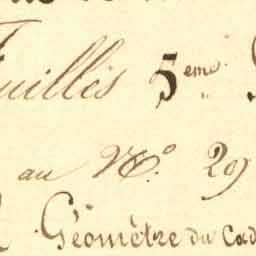 Feuilles 5eme
au No. 29
Géomètre du Cad